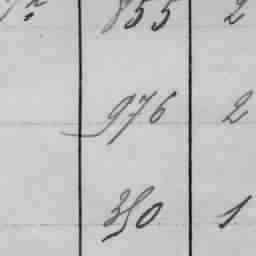 855 2
976 2
350 1